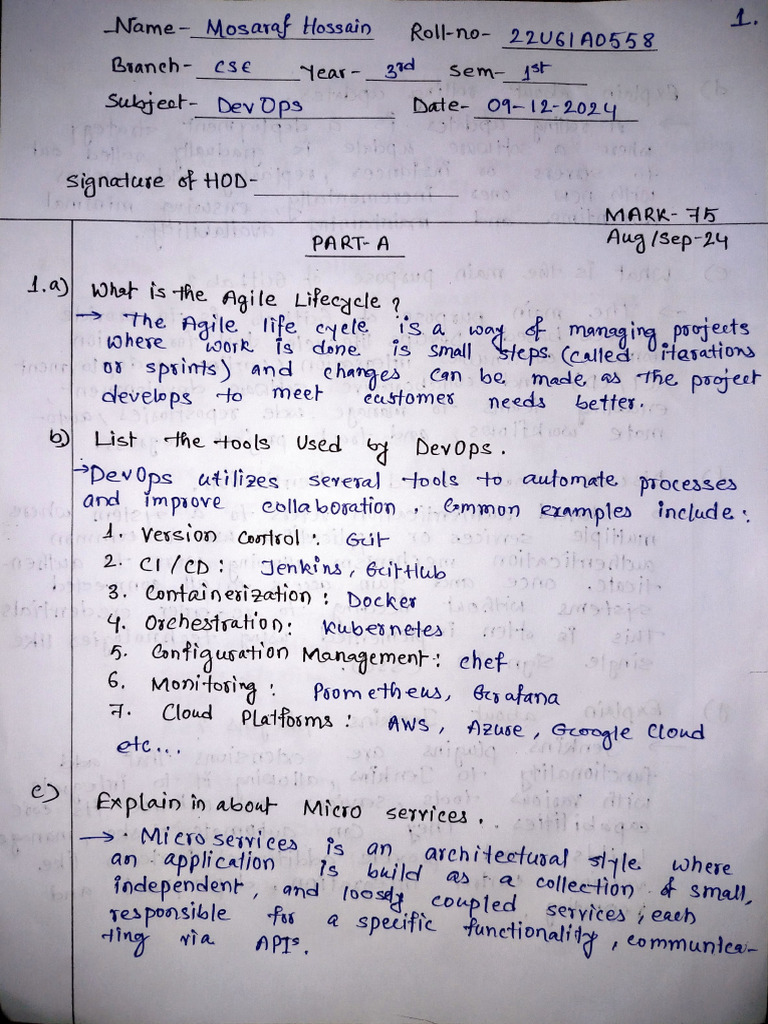 1.
Name- Mosaraf Hossain Roll-no- 22U61A0558
Branch- CSE Year- 3rd Sem- 1st
Subject- DevOps Date- 09-12-2024
Signature of HOD-
MARK- 75
PART-A Aug/Sep-24
1.a) What is the Agile Lifecycle?
→ The Agile life cycle is a way of managing projects
where work is done is small steps (called iterations
or sprints) and changes can be made as the project
develops to meet customer needs better.
b) List the tools Used by DevOps.
→ DevOps utilizes several tools to automate processes
and improve collaboration. Common examples include:
1. Version Control: Git
2. CI/CD: Jenkins, GitHub
3. Containerization: Docker
4. Orchestration: Kubernetes
5. Configuration Management: chef
6. Monitoring: Prometheus, Grafana
7. Cloud Platforms: AWS, Azure, Google Cloud
etc...
c) Explain in about Micro services.
→ Microservices is an architectural style where
an application is build as a collection of small,
independent, and loosely coupled services, each
responsible for a specific functionality, communica-
ting via APIs.